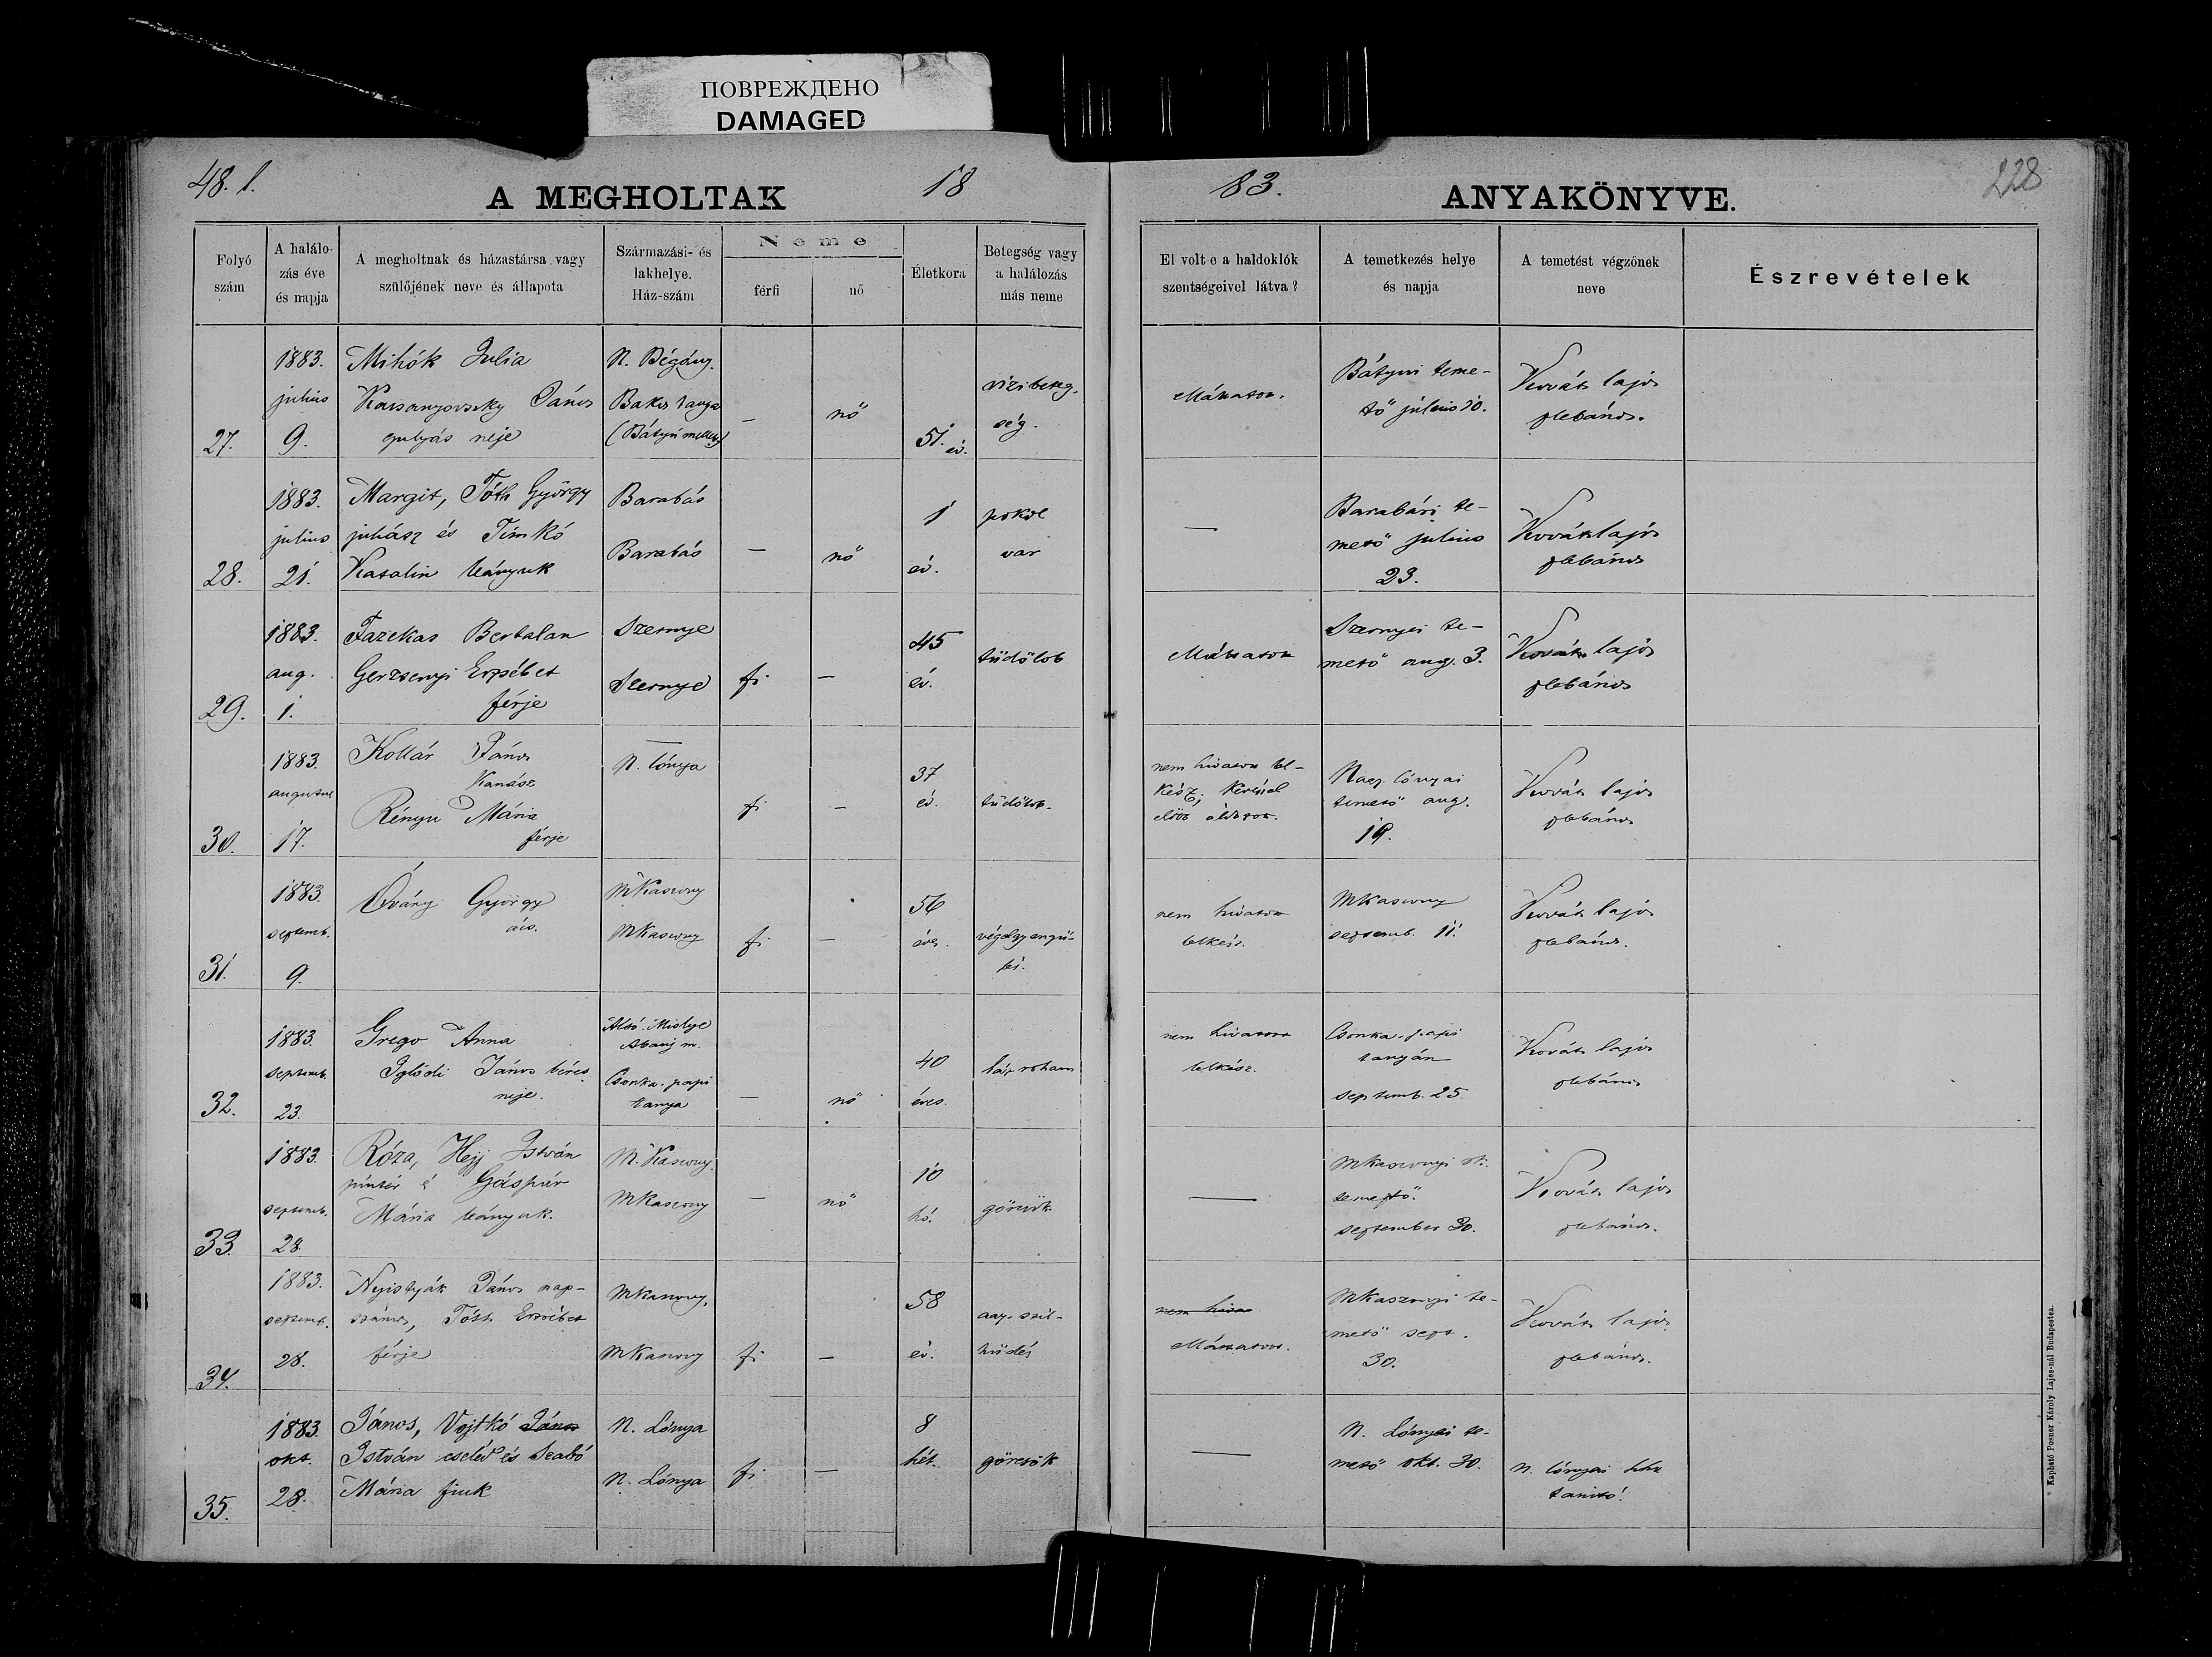 ПОВРЕЖДЕНО
DAMAGED
48. l.
A MEGHOLTAK
18
83.
ANYAKÖNYVE.
228
Folyó szám
A halálo-
zás éve
és napja
A megholtnak és házastársa vagy
szülőjének neve és állapota
Származási- és
lakhelye.
Ház-szám
Neme
férfi
nő
Életkora
Betegség vagy
a halálozás
más neme
El volt-e a haldoklók
szentségeivel látva?
A temetkezés helye
és napja
A temetést végzőnek
neve
Észrevételek
27.
1883.
julius
9.
Mihók Julia
János
gulyás neje
N. Bégány.
Bakos tanya
(Bátyú mellett)
—
nő
51. év.
vizi beteg-
ség.
Bátyui teme-
tő július 10.
Kováts lajos
plebános.
28.
1883.
julius
21.
Margit, Tóth György
juhász és Timkó
Katalin leányuk
Barabás
Barabás
—
nő
1
év.
pokol
var
—
Barabási te-
mető julius
23.
Kováts lajos
plebános
29.
1883.
aug.
1.
Fazekas Bertalan
Gerzsenyi Erzsébet
férje
Szernye
Szernye
fi
—
45
év.
tüdőlob
Szernyei te-
mető aug. 3.
Kováts lajos
plebános
30.
1883.
augustus
17.
Kollár János
Kanász
Mária
férje
N. lónya
fi
—
37
év.
tüdőlob.
nem hivatott lel-
kész;
Nagy lónyai
temető aug.
19.
Kováts lajos
plebános
31.
1883.
septemb.
9.
Óváry György
ács.
MKaszony
MKaszony
fi
—
56
éves.
végelgyengü-
lés.
nem hivatott
lelkész.
MKaszony
septemb. 11.
Kováts lajos
plebános.
32.
1883.
septemb.
23.
Grego Anna
Iglódi János béres
neje.
Alsó-Mislye
Abauj m.
Csonka-papi
tanya
—
nő
40
éves.
láz roham
nem hivatott
lelkész.
Csonka-papi
tanyán
septemb. 25.
Kováts lajos
plebános
33.
1883.
septemb.
28.
Róza, Hejj István
pintér és Gáspár
Mária leányuk.
M.Kaszony.
MKaszony
—
nő
10
hó.
görcsök.
—
MKaszonyi rk.
temető.
september 30.
Kováts lajos
plebános.
34.
1883.
septemb.
28.
Nyistyák János nap-
számos, Tóth Erzsébet
férje
MKaszony,
MKaszony
fi
—
58
év.
agy-szél-
hüdés
nem hiva
MKaszonyi te-
mető sept.
30.
Kováts lajos
plebános.
35.
1883.
okt.
28.
János, Vojtkó János
István cseléd és Szabó
Mária fiuk
N. Lónya
N. Lónya
fi
—
8
hét.
görcsök
—
N. Lónyai te-
mető okt. 30.
N. lónyai
tanító!
Kapható Posner Károly Lajos-nál Budapesten.